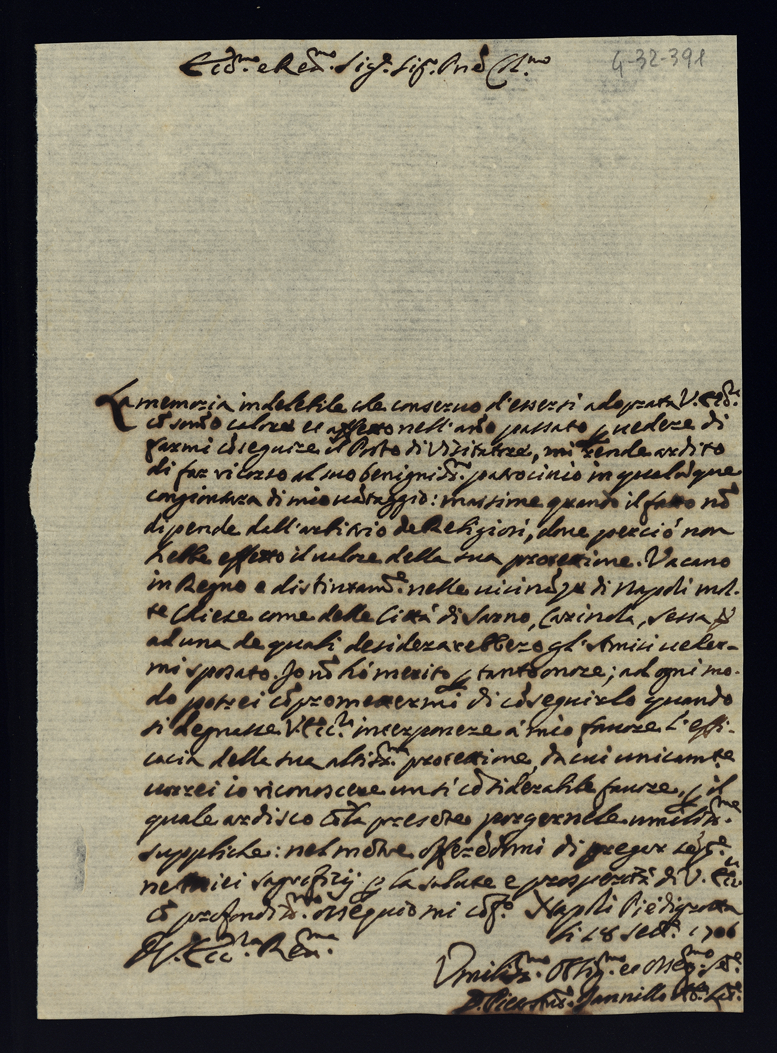 4-32-391
Ecc.mo e Rev.mo Sig.r Sig.r Pne Col.mo
La memoria indelebile che conservo d'essersi adoprata V. Ecc.
cõ sõmo calore et affetto nell'anño passato p vedere di
farmi cõseguire il Posto di Visitatore, mi rende ardito
di far ricorso al suo benigniss.mo patrocinio in qualũque
congiontura di mio vãtaggio: massime quando il fatto nõ
dipende dall'arbitrio de Religiosi, dove perciò non
hebbe effetto il valore della sua protettione. Vacano
in Regno e distintam.te nelle vicinãze di Napoli mol-
te Chiese come delle Città di Sarno, Carinola, Sessa
ad una de quali desiderarebbero gl'Amici veder-
mi sposato. Io nõ hò merito p tanto onore; ad ogni mo-
do potrei cõpromettermi di cõseguirlo quando
si degnasse V. Ecc.za interponere à mio favore l'effi-
cacia della sua altiss.ma protettione, da cui unicamte
vorrei io riconoscere un sì cõsiderabile favore, p il
quale ardisco cõ la presente porgernele umiliss.me
suppliche: nel mentre offerẽdomi di pregar
ne miei sagrificij p la salute e prosperità di V. Ecc.
cõ profondiss.mo ossequio mi cõf.o Napoli Piedigrotta
li 28 Sett. 1706
D V. Ecc.za Rev.ma
Umiliss.mo Obblig.mo et Osseq.mo Se.
D. Iannillo